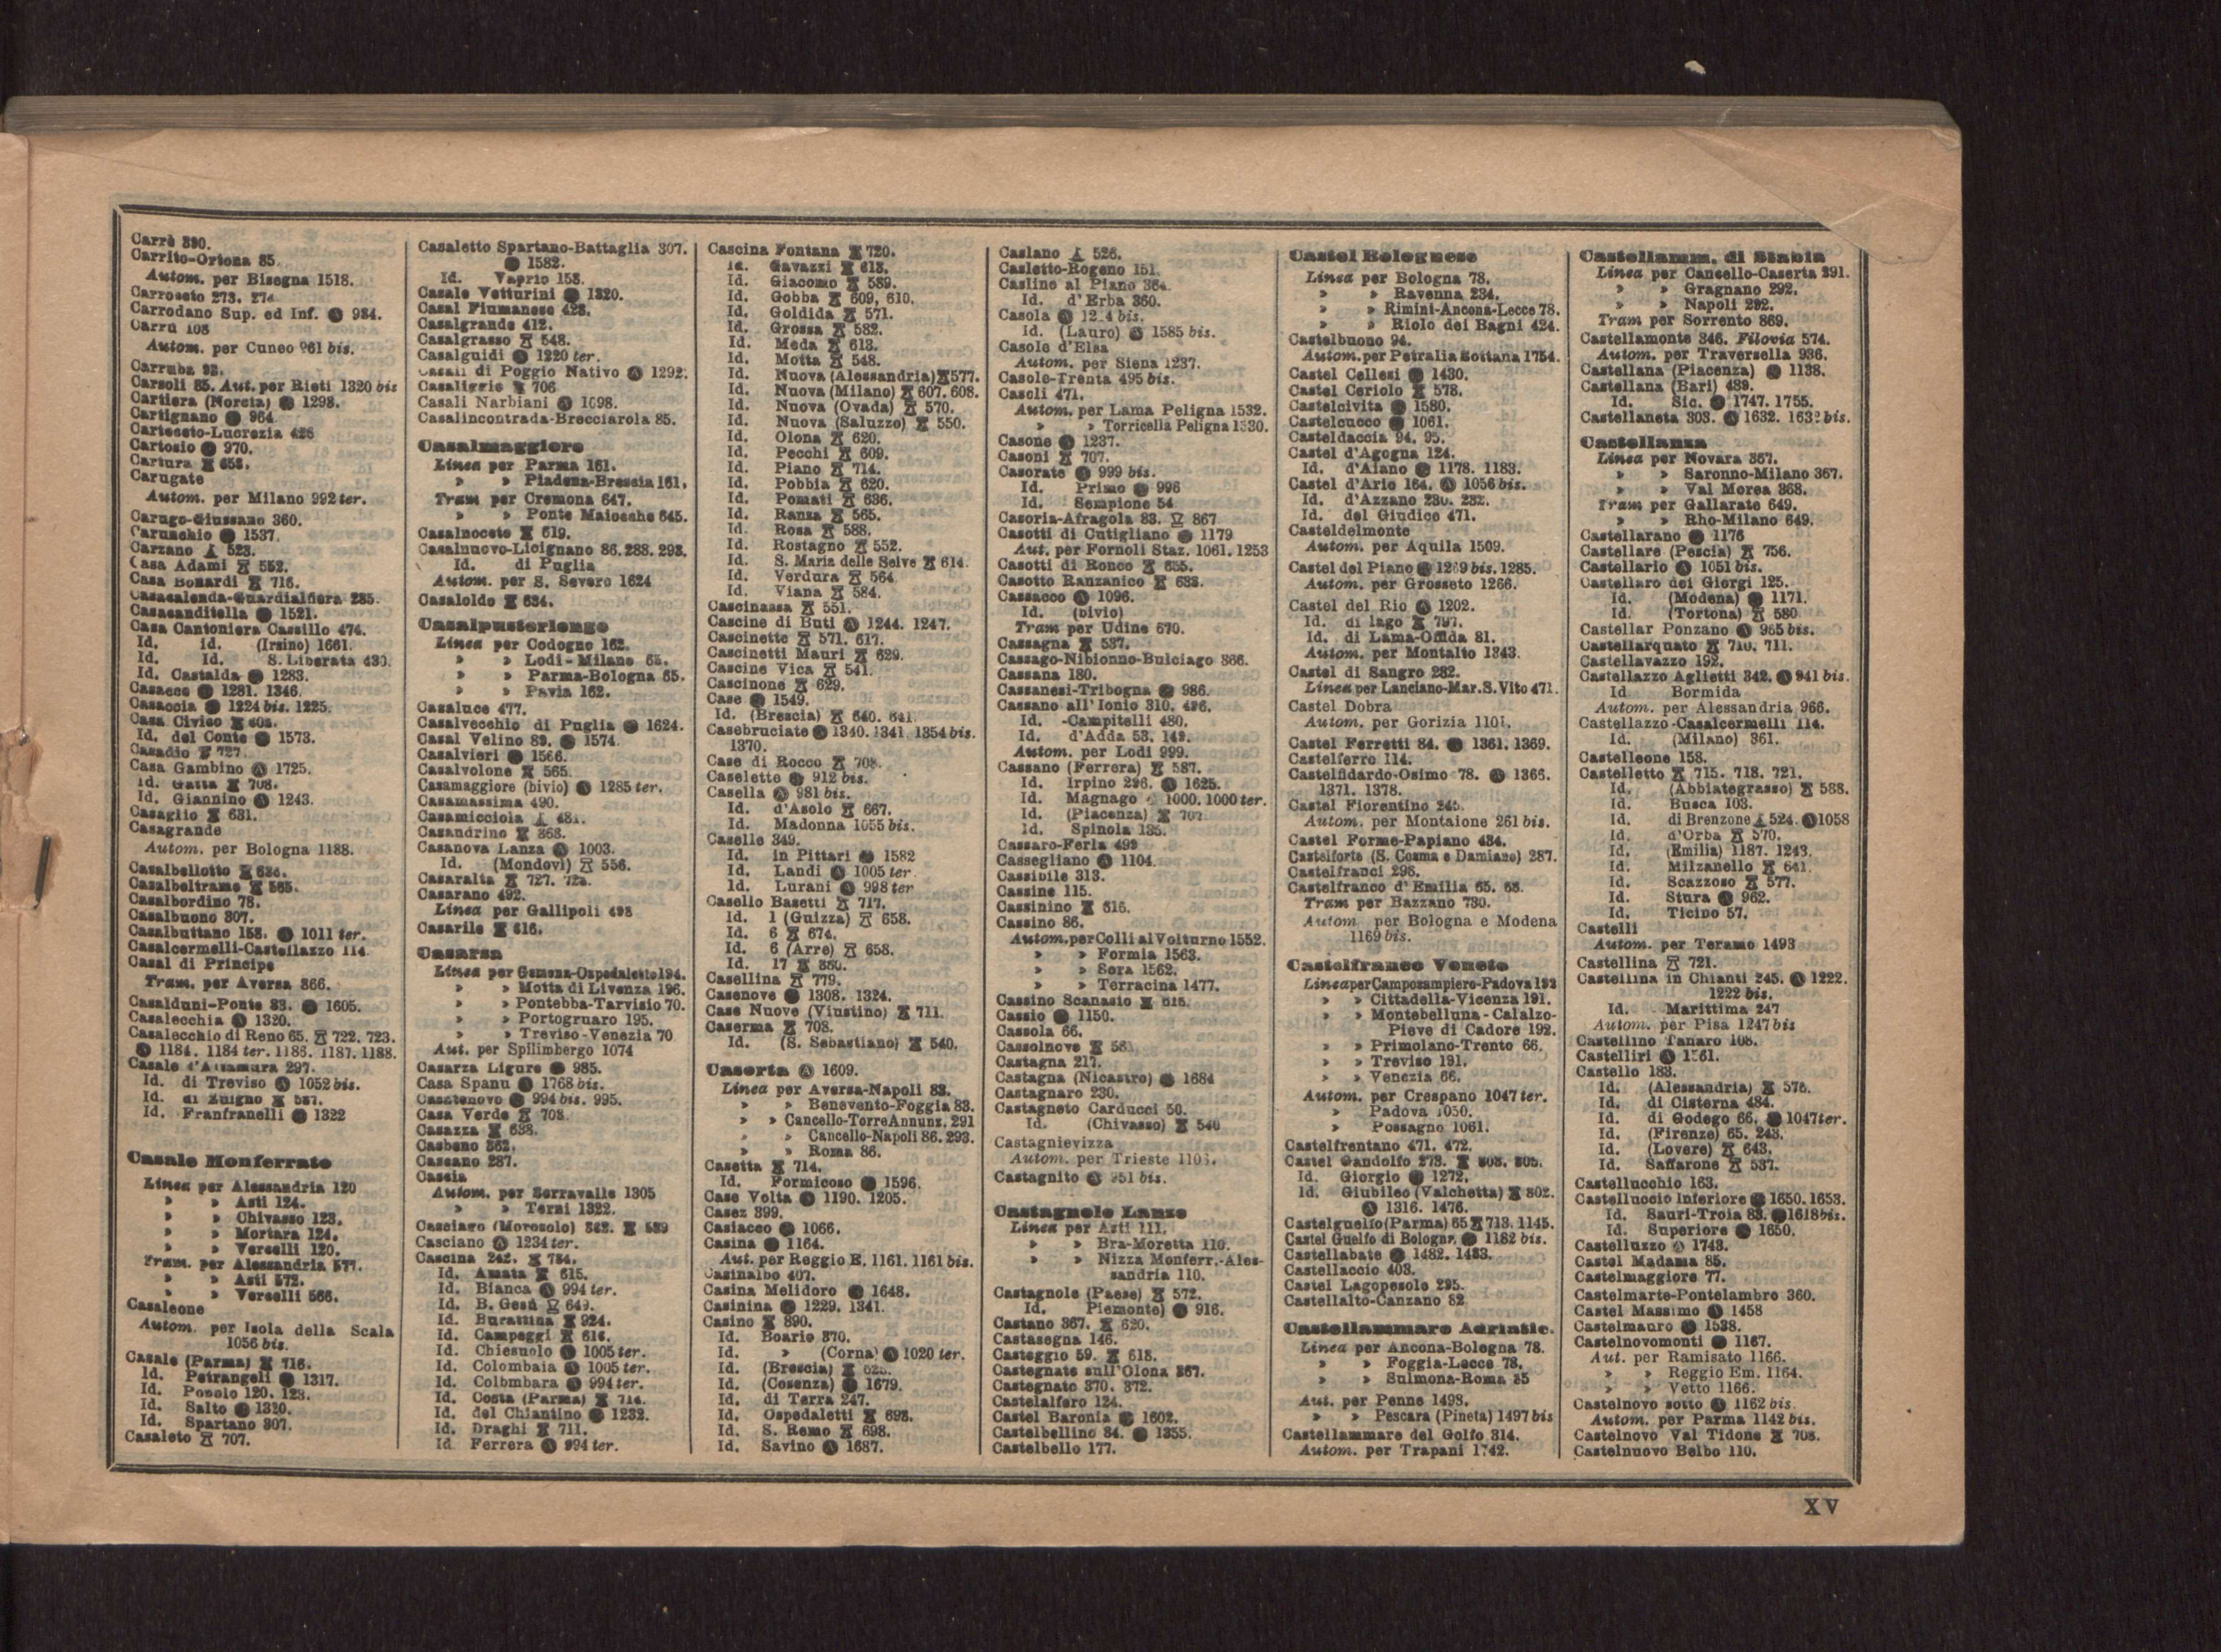 Carrè 390.
Carrito-Ortona 85.
Autom. per Bisegna 1518.
Carroseto 273. 274
Carrodano Sup. ed Inf. Ⓐ 984.
Carrù 108
Autom. per Cuneo 961 bis.
Carruba 93.
Carsoli 85. Aut. per Rieti 1320 bis
Cartiera (Norcia) Ⓐ 1298.
Cartignano Ⓐ 964
Carteseto-Lucrezia 426
Cartosio Ⓐ 970.
Cartura 653.
Carugate
Autom. per Milano 992 ter.
Carugo-Giussano 360.
Carunchio Ⓐ 1537.
Carzano 523.
Casa Adami 552.
Casa Bonardi 716.
Casacalenda-Guardialfiera 285.
Casacanditella Ⓐ 1521.
Casa Cantoniera Cassillo 474.
Id. id. (Irsino) 1661.
Id. Id. S. Liberata 430.
Id. Castalda Ⓐ 1283.
Casacce Ⓐ 1281. 1346.
Casaccia Ⓐ 1224 bis. 1225.
Casa Civico
Id. del Conte Ⓐ 1573.
Casadio 727.
Casa Gambino Ⓐ 1725.
Id. Gatta 708.
Id. Giannino Ⓐ 1243.
Casaglio 631.
Casagrande
Autom. per Bologna 1188.
Casalbellotto
Casalbeltrame 565.
Casalbordino 78.
Casalbuono 307.
Casalbuttano 158. Ⓐ 1011 ter.
Casalcermelli-Castellazzo 114.
Casal di Principe
Tram. per Aversa 866.
Casalduni-Ponte 83. Ⓐ 1605.
Casalecchia Ⓐ 1320.
Casalecchio di Reno 65. 722. 723.
Ⓐ 1184. 1184 ter. 1186. 1187. 1188.
Casale d'Altamura 297.
Id. di Treviso Ⓐ 1052 bis.
Id. di Zuigno
Id. Franfranelli Ⓐ 1322
Casale Monferrato
Linea per Alessandria 120
» » Asti 124.
» » Chivasso 123.
» » Mortara 124.
» » Vercelli 120.
Tram. per Alessandria 577.
» » Asti 572.
» » Vercelli 566.
Casaleone
Autom. per Isola della Scala
1056 bis.
Casale (Parma) 716.
Id. Petrangeli Ⓐ 1317.
Id. Popolo 120. 123.
Id. Salto Ⓐ 1320.
Id. Spartano 307.
Casaleto 707.
Casaletto Spartano-Battaglia 307.
Ⓐ 1582.
Id. Vaprio 158.
Casale Vetturini Ⓐ 1320.
Casal Fiumanese 423.
Casalgrande 412.
Casalgrasso 548.
Casalguidi Ⓐ 1220 ter.
Casali di Poggio Nativo Ⓐ 1292.
Casaliggio 706
Casali Narbiani Ⓐ 1098.
Casalincontrada-Brecciarola 85.
Casalmaggiore
Linea per Parma 161.
» » Piadena-Brescia 161.
Tram per Cremona 647.
» » Ponte Maiocche 645.
Casalnoceto 619.
Casalnuovo-Licignano 86. 288. 293.
Id. di Puglia
Autom. per S. Severo 1624
Casaloldo 634.
Casalpusterlengo
Linea per Codogno 162.
» » Lodi-Milano 65.
» » Parma-Bologna 65.
» » Pavia 162.
Casaluce 477.
Casalvecchio di Puglia Ⓐ 1624.
Casal Velino 89. Ⓐ 1574.
Casalvieri Ⓐ 1566.
Casalvolone 565.
Casamaggiore (bivio) Ⓐ 1285 ter.
Casamassima 490.
Casamicciola
Casandrino 868.
Casanova Lanza Ⓐ 1003.
Id. (Mondovì) 556.
Casaralta 727. 728.
Casarano 492.
Linea per Gallipoli 493
Casarile 616.
Casarsa
Linea per Gemona-Ospedaletto 194.
» » Motta di Livenza 196.
» » Pontebba-Tarvisio 70.
» » Portogruaro 195.
» » Treviso-Venezia 70
Aut. per Spilimbergo 1074
Casarza Ligure Ⓐ 985.
Casa Spanu Ⓐ 1768 bis.
Casatenovo Ⓐ 994 bis. 995.
Casa Verde 708.
Casazza 638.
Casbeno 362.
Cascano 287.
Cascia
Autom. per Serravalle 1305
» » Terni 1322.
Casciago (Morosolo) 362. 589
Casciano Ⓐ 1234 ter.
Cascina 242. 784.
Id. Amata 615.
Id. Bianca Ⓐ 994 ter.
Id. B. Gesù 649.
Id. Burattina 924.
Id. Campaggi 616.
Id. Chiesuolo Ⓐ 1005 ter.
Id. Colombaia Ⓐ 1005 ter.
Id. Colbmbara Ⓐ 994 ter.
Id. Costa (Parma) 714.
Id. del Chiantino Ⓐ 1232.
Id. Draghi 711.
Id Ferrera Ⓐ 994 ter.
Cascina Fontana 720.
Id. Gavazzi 613.
Id. Giacomo 589.
Id. Gobba 609, 610.
Id. Goldida 571.
Id. Grossa 582.
Id. Meda 613.
Id. Motta 548.
Id. Nuova (Alessandria) 577.
Id. Nuova (Milano) 607. 608.
Id. Nuova (Ovada) 570.
Id. Nuova (Saluzzo) 550.
Id. Olona 620.
Id. Pecchi 609.
Id. Piano 714.
Id. Pobbia 620.
Id. Pomati 636.
Id. Ranza 565.
Id. Rosa 588.
Id. Rostagno 552.
Id. S. Maria delle Selve 614.
Id. Verdura 564
Id. Viana 584.
Cascinassa 551.
Cascine di Buti Ⓐ 1244. 1247.
Cascinette 571. 617.
Cascinetti Mauri 629.
Cascine Vica 541.
Cascinone 629.
Case Ⓐ 1549.
Id. (Brescia) 640. 641.
Casebruciate Ⓐ 1340. 1341. 1354 bis.
1370.
Case di Rocco 708.
Caselette Ⓐ 912 bis.
Casella Ⓐ 981 bis.
Id. d'Asolo 667.
Id. Madonna 1055 bis.
Caselle 349.
Id. in Pittari Ⓐ 1582
Id. Landi Ⓐ 1005 ter
Id. Lurani Ⓐ 998 ter
Casello Basetti 717.
Id. 1 (Guizza) 658.
Id. 6 674.
Id. 6 (Arre) 658.
Id. 17
Casellina 779.
Casenove Ⓐ 1308. 1324.
Case Nuove (Viustino) 711.
Caserma 708.
Id. (S. Sebastiano) 540.
Caserta Ⓐ 1609.
Linea per Aversa-Napoli 83.
» » Benevento-Foggia 83.
» » Cancello-Torre Annunz. 291
» » Cancello-Napoli 86. 293.
» » Roma 86.
Casetta 714.
Id. Formicoso Ⓐ 1596.
Case Volta Ⓐ 1190. 1205.
Casez 399.
Casiacco Ⓐ 1066.
Casina Ⓐ 1164.
Aut. per Reggio E. 1161. 1161 bis.
Casinalbo 407.
Casina Melidoro Ⓐ 1648.
Casinina Ⓐ 1229. 1341.
Casino 890.
Id. Boario 370.
Id. » (Corna) Ⓐ 1020 ter.
Id. (Brescia)
Id. (Cosenza) Ⓐ 1679.
Id. di Terra 247.
Id. Ospedaletti 698.
Id. S. Remo 698.
Id. Savino Ⓐ 1687.
Caslano 526.
Casletto-Rogeno 151.
Caslino al Piano 364.
Id. d'Erba 360.
Casola Ⓐ 1214 bis.
Id. (Lauro) Ⓐ 1585 bis.
Casole d'Elsa
Autom. per Siena 1237.
Casole-Trenta 495 bis.
Casoli 471.
Autom. per Lama Peligna 1532.
» » Torricella Peligna 1530.
Casone Ⓐ 1237.
Casoni 707.
Casorate Ⓐ 999 bis.
Id. Primo Ⓐ 996
Id. Sempione 54
Casoria-Afragola 83. 867
Casotti di Cutigliano Ⓐ 1179
Aut. per Fornoli Staz. 1061. 1253
Casotti di Ronco 655.
Casotto Ranzanico 638.
Cassacco Ⓐ 1096.
Id. (bivio)
Tram per Udine 670.
Cassagna 537.
Cassago-Nibionno-Bulciago 366.
Cassana 180.
Cassanesi-Tribogna Ⓐ 986.
Cassano all'Ionio 310. 496.
Id. -Campitelli 480.
Id. d'Adda 53. 149.
Autom. per Lodi 999.
Cassano (Ferrera) 587.
Id. Irpino 296. Ⓐ 1625.
Id. Magnago 1000. 1000 ter.
Id. (Piacenza) 707
Id. Spinola 135.
Cassaro-Ferla 499
Cassegliano Ⓐ 1104.
Cassibile 313.
Cassine 115.
Cassinino 616.
Cassino 86.
Autom. per Colli al Volturno 1552.
» » Formia 1563.
» » Sora 1562.
» » Terracina 1477.
Cassino Scanasio 616.
Cassio Ⓐ 1150.
Cassola 66.
Cassolnovo
Castagna 217.
Castagna (Nicastro) Ⓐ 1684
Castagnaro 230.
Castagneto Carducci 50.
Id. (Chivasso) 540
Castagnievizza
Autom. per Trieste 1105.
Castagnito Ⓐ 951 bis.
Castagnole Lanze
Linea per Asti 111.
» » Bra-Moretta 110.
» » Nizza Monferr.-Ales-
sandria 110.
Castagnole (Paese) 572.
Id. Piemonte) Ⓐ 916.
Castano 367. 620.
Castasegna 146.
Casteggio 59. 618.
Castegnate sull'Olona 367.
Castegnato 370. 372.
Castelalfero 124.
Castel Baronia Ⓐ 1602.
Castelbellino 84. Ⓐ 1355.
Castelbello 177.
Castel Bolognese
Linea per Bologna 78.
» » Ravenna 234.
» » Rimini-Ancona-Lecce 78.
» » Riolo dei Bagni 424.
Castelbuono 94.
Autom. per Petralia Sottana 1754.
Castel Cellesi Ⓐ 1430.
Castel Ceriolo 578.
Castelcivita Ⓐ 1580.
Castelcucco Ⓐ 1061.
Casteldaccia 94. 95.
Castel d'Agogna 124.
Id. d'Aiano Ⓐ 1178. 1183.
Castel d'Ario 164. Ⓐ 1056 bis.
Id. d'Azzano 230. 232.
Id. del Giudice 471.
Casteldelmonte
Autom. per Aquila 1509.
Castel del Piano Ⓐ 1269 bis. 1285.
Autom. per Grosseto 1266.
Castel del Rio Ⓐ 1202.
Id. di lago 797.
Id. di Lama-Offida 81.
Autom. per Montalto 1343.
Castel di Sangro 282.
Linea per Lanciano-Mar. S. Vito 471.
Castel Dobra
Autom. per Gorizia 1101.
Castel Ferretti 84. Ⓐ 1361. 1369.
Castelferro 114.
Castelfidardo-Osimo 78. Ⓐ 1366.
1371. 1378.
Castel Fiorentino 245.
Autom. per Montaione 261 bis.
Castel Forme-Papiano 434.
Castelforte (S. Cosma e Damiano) 287.
Castelfranci 296.
Castelfranco d'Emilia 65. 68.
Tram per Bazzano 730.
Autom per Bologna e Modena
1169 bis.
Castelfranco Veneto
Linea per Camposampiero-Padova 192
» » Cittadella-Vicenza 191.
» » Montebelluna-Calalzo-
Pieve di Cadore 192.
» » Primolano-Trento 66.
» » Treviso 191.
» » Venezia 66.
Autom. per Crespano 1047 ter.
» Padova 1050.
» Possagno 1061.
Castelfrentano 471. 472.
Castel Gandolfo 273. 803. 805.
Id. Giorgio Ⓐ 1272.
Id. Giubileo (Valchetta) 802.
Ⓐ 1316. 1476.
Castelguelfo (Parma) 65 713. 1145.
Castel Guelfo di Bologna Ⓐ 1182 bis.
Castellabate Ⓐ 1482. 1483.
Castellaccio 408.
Castel Lagopesole 295.
Castellalto-Canzano 82
Castellammare Adriatic.
Linea per Ancona-Bologna 78.
» » Foggia-Lecce 78.
» » Sulmona-Roma 85
Aut. per Penne 1498.
» » Pescara (Pineta) 1497 bis
Castellammare del Golfo 314.
Autom. per Trapani 1742.
Castellamm. di Stabia
Linea per Cancello-Caserta 291.
» » Gragnano 292.
» » Napoli 292.
Tram per Sorrento 869.
Castellamonte 346. Filovia 574.
Autom. per Traversella 936.
Castellana (Piacenza) Ⓐ 1138.
Castellana (Bari) 489.
Id. Sic. Ⓐ 1747. 1755.
Castellaneta 303. Ⓐ 1632. 1632 bis.
Castellanza
Linea per Novara 367.
» » Saronno-Milano 367.
» » Val Morea 368.
Tram per Gallarate 649.
» » Rho-Milano 649.
Castellarano Ⓐ 1176
Castellare (Pescia) 756.
Castellario Ⓐ 1051 bis.
Castellaro dei Giorgi 125.
Id. (Modena) Ⓐ 1171.
Id. (Tortona) 580
Castellar Ponzano Ⓐ 965 bis.
Castellarquato 710. 711.
Castellavazzo 192.
Castellazzo Aglietti 342. Ⓐ 941 bis.
Id Bormida
Autom. per Alessandria 966.
Castellazzo-Casalcermelli 114.
Id. (Milano) 361.
Castelleone 158.
Castelletto 715. 718. 721.
Id. (Abbiategrasso) 588.
Id. Busca 103.
Id. di Brenzone 524. Ⓐ 1058
Id. d'Orba 570.
Id. (Emilia) 1187. 1243.
Id. Milzanello 641.
Id. Scazzoso 577.
Id. Stura Ⓐ 962.
Id. Ticino 57.
Castelli
Autom. per Teramo 1493
Castellina 721.
Castellina in Chianti 245. Ⓐ 1222.
1222 bis.
Id. Marittima 247
Autom. per Pisa 1247 bis
Castellino Tanaro 108.
Castelliri Ⓐ 1561.
Castello 183.
Id. (Alessandria) 576.
Id. di Cisterna 484.
Id. di Godego 66. Ⓐ 1047 ter.
Id. (Firenze) 65. 243.
Id. (Lovere) 643.
Id. Saffarone 537.
Castellucchio 163.
Castelluccio Inferiore Ⓐ 1650. 1653.
Id. Sauri-Troia 83. Ⓐ 1618 bis.
Id. Superiore Ⓐ 1650.
Castelluzzo Ⓐ 1743.
Castel Madama 85.
Castelmaggiore 77.
Castelmarte-Pontelambro 360.
Castel Massimo Ⓐ 1458
Castelmauro Ⓐ 1538.
Castelnovomonti Ⓐ 1167.
Aut. per Ramisato 1166.
» » Reggio Em. 1164.
» » Vetto 1166.
Castelnovo sotto Ⓐ 1162 bis
Autom. per Parma 1142 bis.
Castelnovo Val Tidone 708.
Castelnuovo Belbo 110.
XV